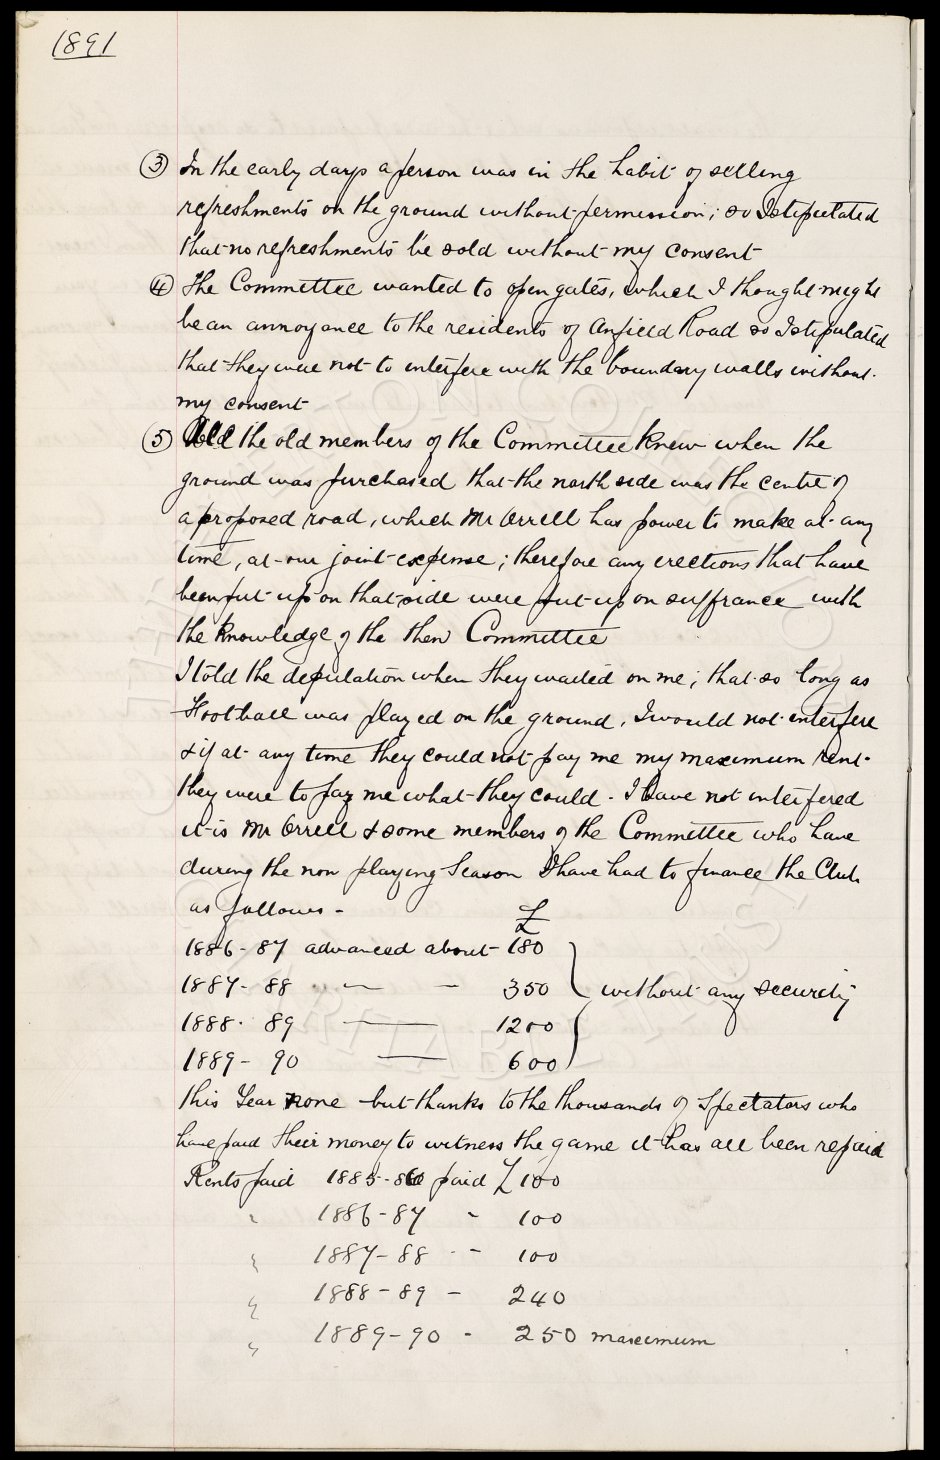 1891
③ In the early days a person was in the habit of selling
refreshments on the ground without permission; so I stipulated
that no refreshments be sold without my consent
④ The Committee wanted to open gates, which I thought might
be an annoyance to the residents of Anfield Road so I stipulated
that they were not to interfere with the boundary walls without
my consent
⑤ All the old members of the Committee knew when the
ground was purchased that the north side was the centre of
a proposed road, which Mr Orrell has power to make at any
time, at our joint expense; therefore any erections that have
been put up on that side were put up on suffrance with
the knowledge of the then Committee
I told the deputation when they waited on me; that so long as
Football was played on the ground, I would not interfere
& if at any time they could not pay me my maximum rent
they were to pay me what they could. I have not interfered
it is Mr Orrell & some members of the Committee who have
during the non playing Season I have had to finance the Club
as follows -
£
1886-87 advanced about 180
1887-88 " — — 350 } without any security
1888-89 — 1200
1889-90 — 600
this Year none but thanks to the thousands of Spectators who
have paid their money to witness the game it has all been repaid
Rents paid 1885-86 paid £100
" 1886-87 - 100
" 1887-88 - 100
" 1888-89 - 240
" 1889-90 - 250 maximum